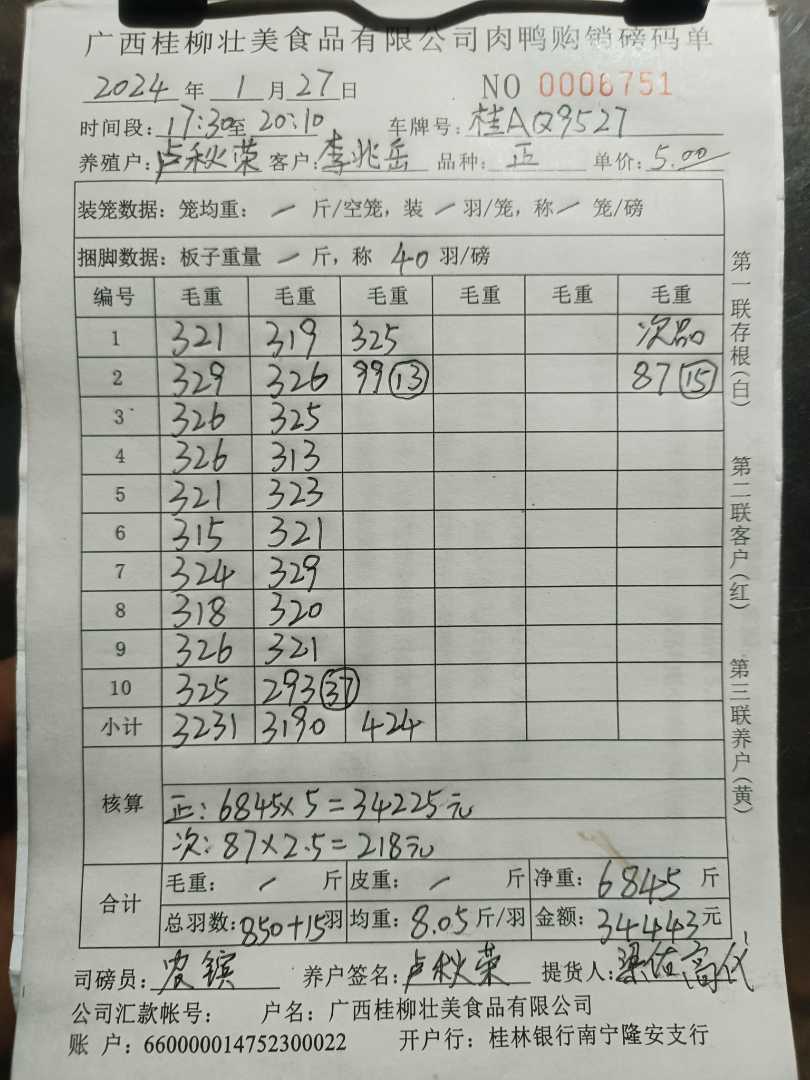 广西桂柳壮美食品有限公司肉鸭购销磅码单
2024 年 1 月 27 日 NO 0006751
时间段: 17:30 至 20:10 车牌号: 桂AQ9527
养殖户: 卢秋荣 客户: 李兆岳 品种: 正 单价: 5.00
装笼数据: 笼均重: / 斤/空笼, 装 / 羽/笼, 称 / 笼/磅
捆脚数据: 板子重量 / 斤, 称 40 羽/磅
编号 毛重 毛重 毛重 毛重 毛重 毛重
1 321 319 325 次品
2 329 326 99 (13) 87 (15)
3 326 325
4 326 313
5 321 323
6 315 321
7 324 329
8 318 320
9 326 321
10 325 293 (37)
小计 3231 3190 424
核算
正: 6845×5=34225元
次: 87×2.5=218元
合计
毛重: / 斤 皮重: / 斤 净重: 6845 斤
总羽数: 850+15 羽 均重: 8.05 斤/羽 金额: 34443 元
司磅员: 养户签名: 卢秋荣 提货人:
公司汇款帐号: 户名: 广西桂柳壮美食品有限公司
账 户: 660000014752300022 开户行: 桂林银行南宁隆安支行
第一联存根(白) 第二联客户(红) 第三联养户(黄)